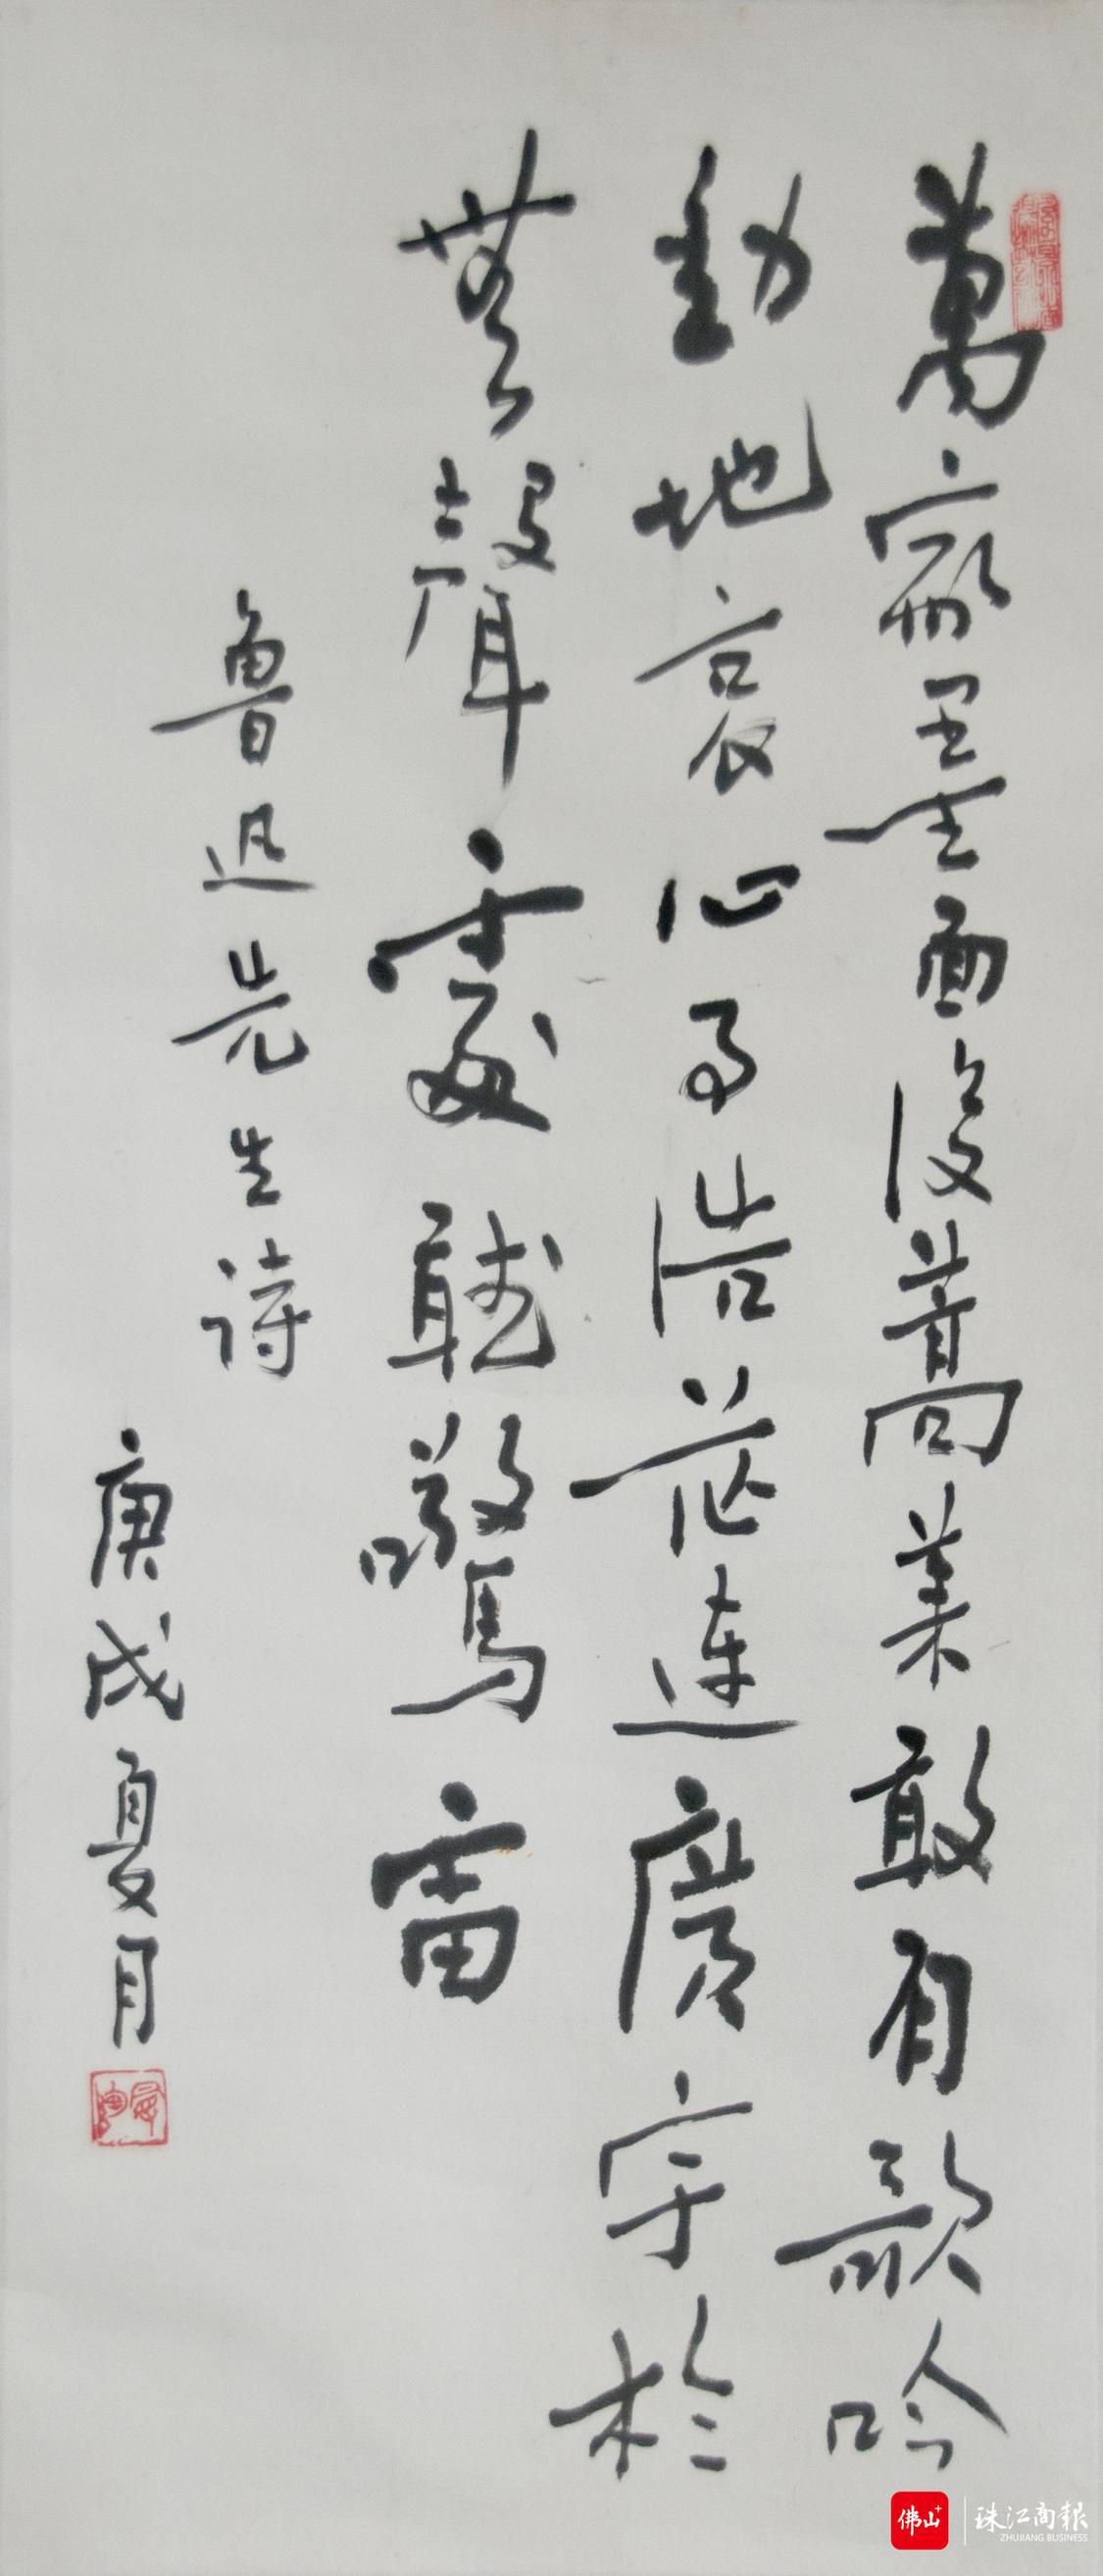 萬家墨面沒蒿萊敢有歌吟
動地哀心事浩茫連廣宇於
無聲處聽驚雷
魯迅先生詩
庚戌夏月
佛山+
珠江商報
ZHUJIANG BUSINESS